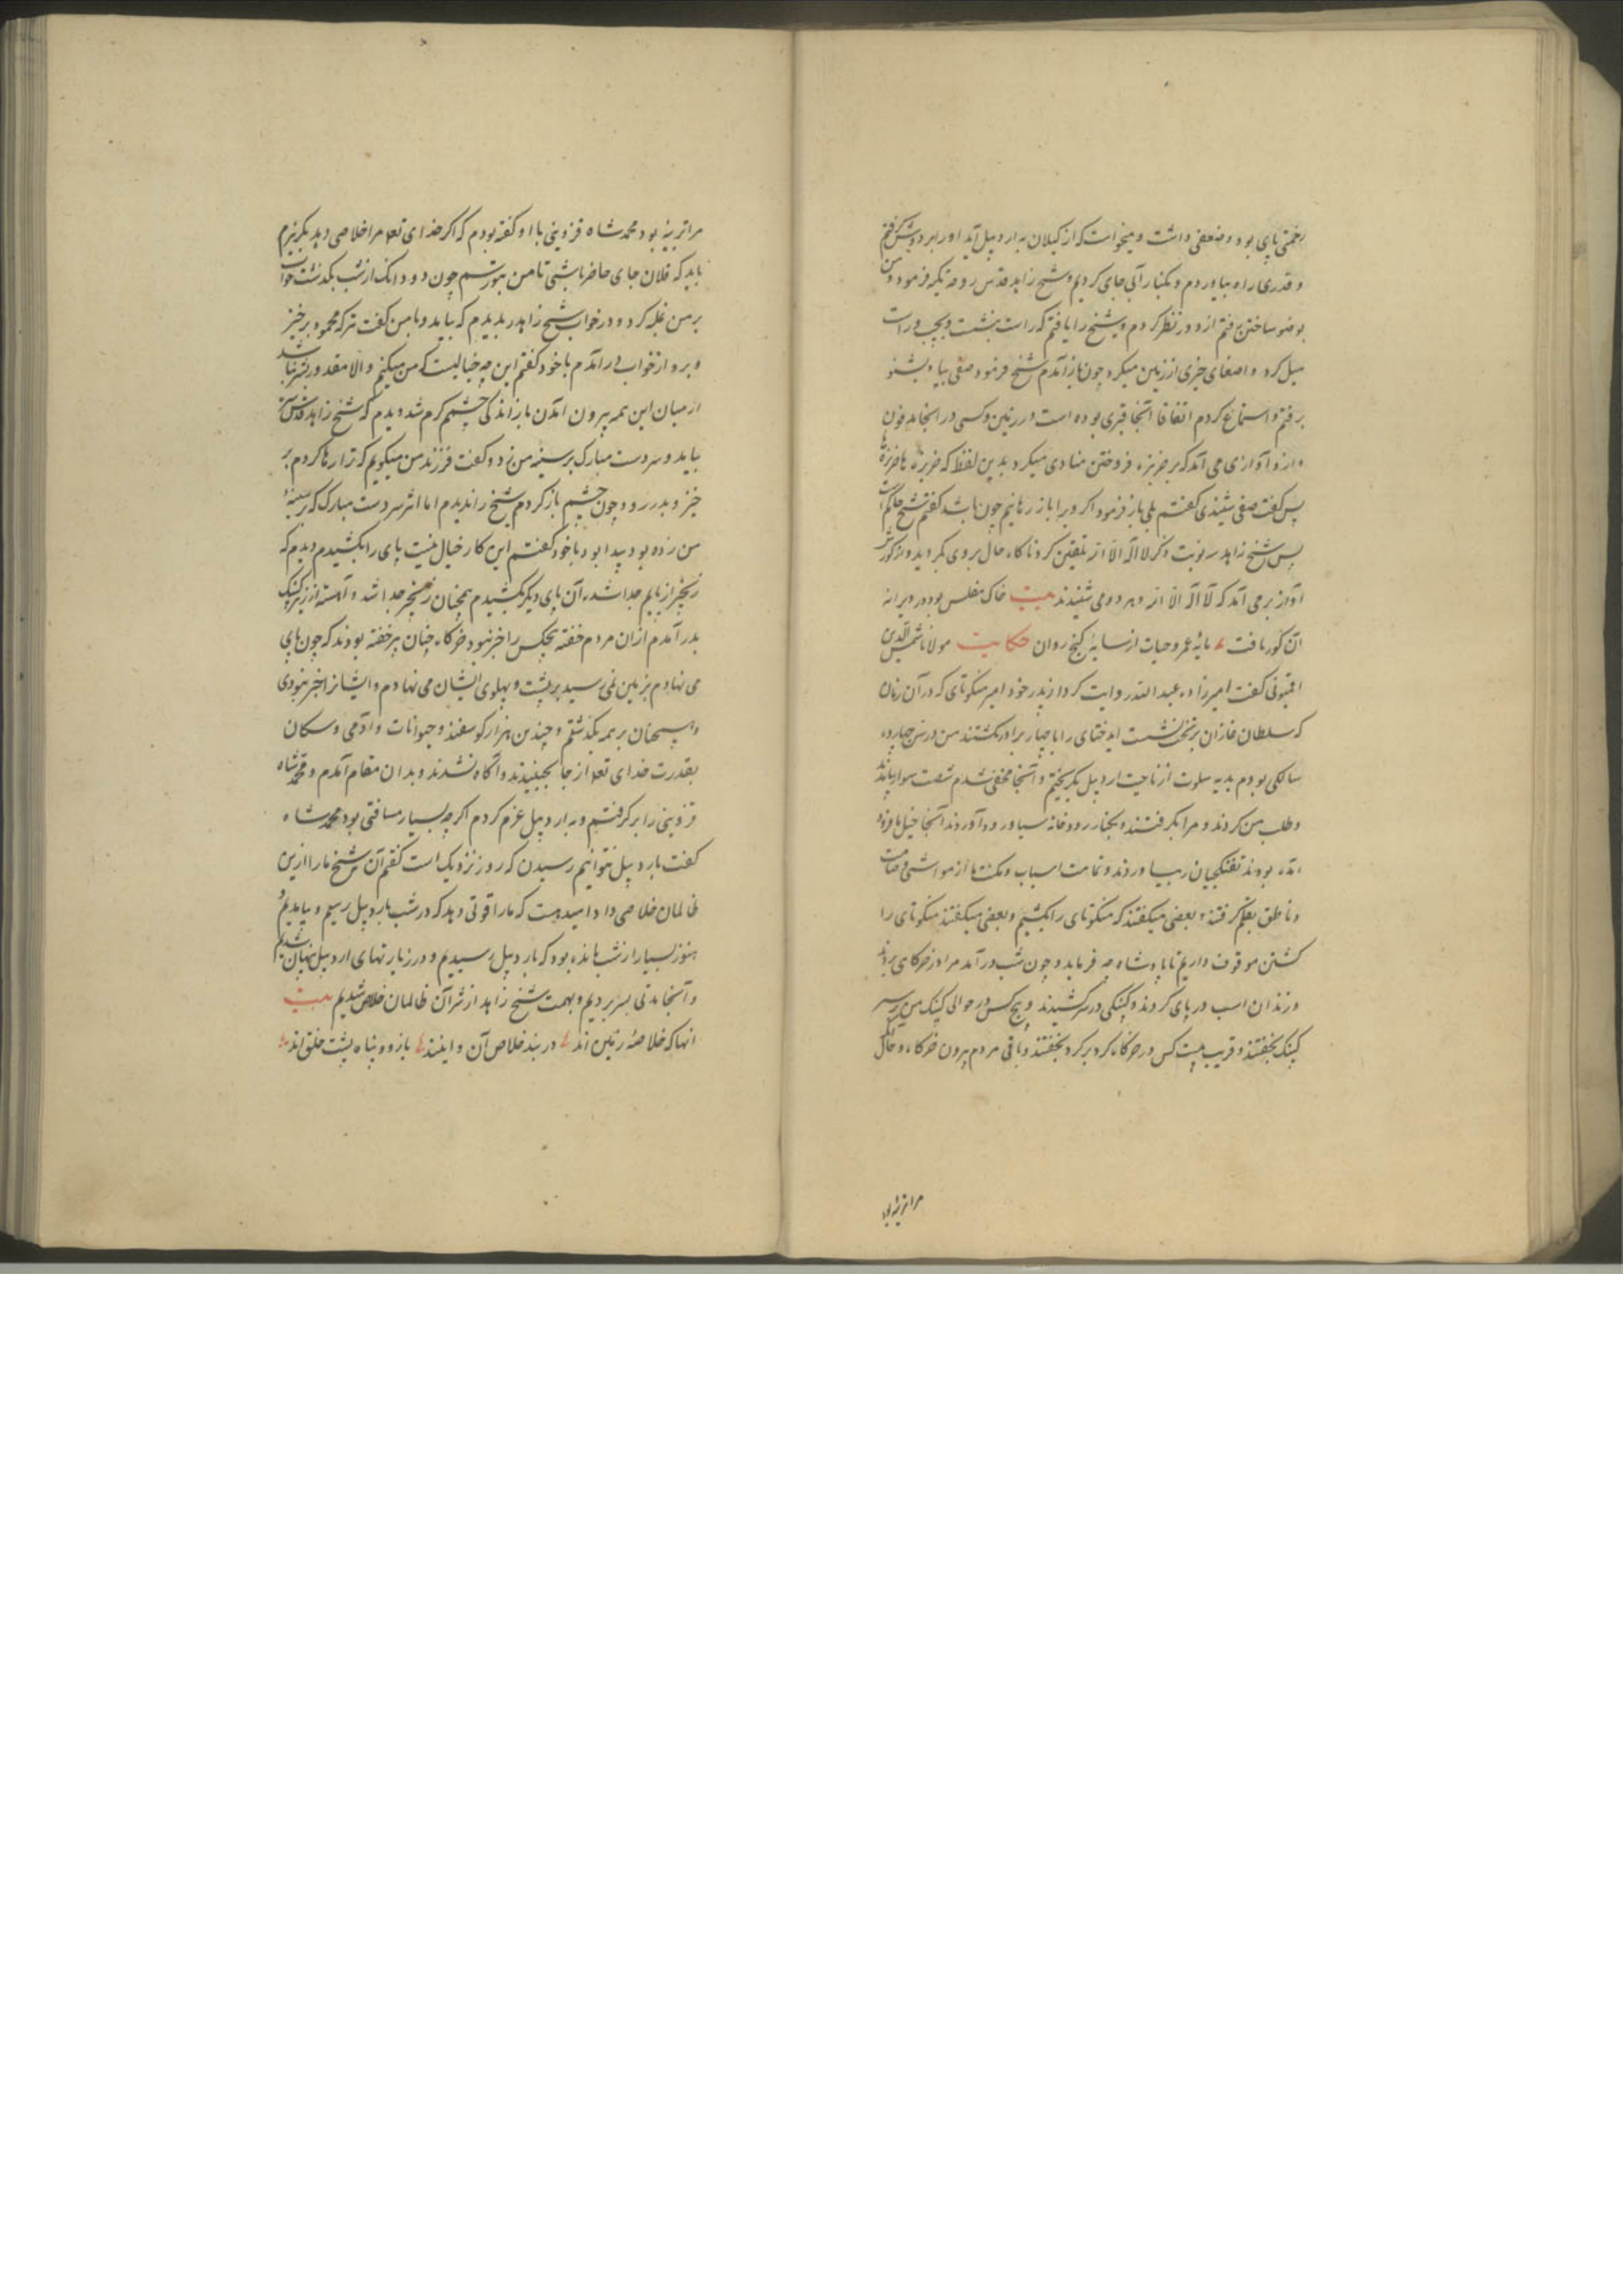 زحمتی بپای بود و ضعفی داشت و میخواست که از کیلان به اردبیل آید او را بر دوش گرفتم
و قدری راه بیاوردم و بکنار آبی جای کردیم و شیخ زاهد قدس روحه تکیه فرمود و من
بوضو ساختن رفتم از دور نظر کردم و شیخ را یافتم که راست بنشست و بچپ و راست
میل کرد و اصغای چیزی از زمین میکرد چون باز آمدم شیخ فرمود صفی بیا و بشنو
برفتم و استماع کردم اتفاقا آنجا قبری بوده است در زمین و کسی در آنجا مدفون
و از و آوازی می آمد که بر خربزه فروختن منادی میکرد بدین لفظ که خربزه ها خربزه ها
پس گفت صفی شنیدی گفتم بلی باز فرمود اگر ویرا باز رهانیم چون باشد گفتم شیخ حاکم است
پس شیخ زاهد سه نوبت ذکر لا اله الا الله تلقین کرد ناگاه حال بروی بگردید و از گورش
آواز بر می آمد که لا اله الا الله و هر دو می شنیدند بیت خاک مفلس بود در ویرانه
آن گور یافت مایه عمر و حیات از سایه گنج روان حکایت مولانا شمس الدین
اقمیونی گفت امیرزاده عبد الله روایت کرد از پدر خود امیر منکوتای که در آن زمان
که سلطان غازان بر تخت نشست ایدختای را با چهار برادر بکشتند من در سن چهارده
سالگی بودم بدیه سلوت از ناحیت اردبیل بگریختم و آنجا مخفی شدم شصت سوار بیامدند
و طلب من کردند و مرا بگرفتند و بکنار رودخانه سیاورود آوردند آنجا خیل ها فرود
آمده بودند تفنکچیان بیاوردند و تمامت اسباب و مکنت ما از مواشی و صامت
و ناطق بقلم گرفتند و بعضی میگفتند که منکوتای را بکشیم و بعضی میگفتند منکوتای را
کشتن موقوف داریم تا پادشاه چه فرماید و چون شب در آمد مرا در خرگاهی بردند
و زندان اسب در پای کردند و کپنکی در سر کشیدند و پنج کس در حوالی کپنک من بر سر
کپنک بخفتند و قریب بیست کس در خرگاه گرد بر گرد بخفتند و باقی مردم بیرون خرگاه و حال آنکه
مرا تربیه بود
مرا تربیه بود محمد شاه قزوینی با او گفته بودم که اگر خدای تعالی مرا خلاصی دهد بگریزم
باید که فلان جای حاضر باشی تا من بتو رسم چون دو دانک از شب بگذشت خواب
بر من غلبه کرد و در خواب شیخ زاهد را بدیدم که بیامد و با من گفت ترکه محمود برخیز
و برو از خواب در آمدم با خود گفتم این چه خیالیست که من میکنم و الا مقدور بشر نباشد
از میان این همه بیرون آمدن باز اندکی چشمم گرم شد دیدم که شیخ زاهد قدس سره
بیامد و سر دست مبارک بر سینه من زد و گفت فرزند من میگویم که ترا رها کردم بر
خیز و بدر رو و چون چشم باز کردم شیخ را ندیدم اما اثر سر دست مبارک که بر سینه
من زده بود پیدا بود با خود گفتم این کار خیال نیست پای را بکشیدم دیدم که
زنجیر از پایم جدا شد آن پای دیگر بکشیدم همچنان زنجیر جدا شد و آهسته از زیر کپنک
بدر آمدم ازان مردم خفته هیچکس را خبر نبود خرگاه چنان پر خفته بودند که چون پای
می نهادم بزمین نمی رسید بر پشت و پهلوی ایشان می نهادم و ایشانرا خبر نبودی
و همچنان بر همه بگذشتم و چندین هزار گوسفند و حیوانات و آدمی و سکان
بقدرت خدای تعالی از جا نجنبیدند و آگاه نشدند و بدان مقام آمدم و محمد شاه
قزوینی را بر گرفتم و به اردبیل عزم کردم اگر چه بسیار مسافتی بود محمد شاه
گفت باردبیل نتوانیم رسیدن که روز نزدیک است گفتم آن شیخ ما را ازین
ظالمان خلاصی داد امید هست که ما را قوتی دهد که در شب باردبیل رسیم و بیامدیم و
هنوز بسیار از شب مانده بود که باردبیل رسیدیم و در زیارتهای اردبیل پنهان شدیم
و آنجا مدتی بسر بردیم و بهمت شیخ زاهد از شر آن ظالمان خلاص شدیم بیت
آنها که خلاصه زمین اند در بند خلاص آن و اینند بازو و پناه پشت خلق اند